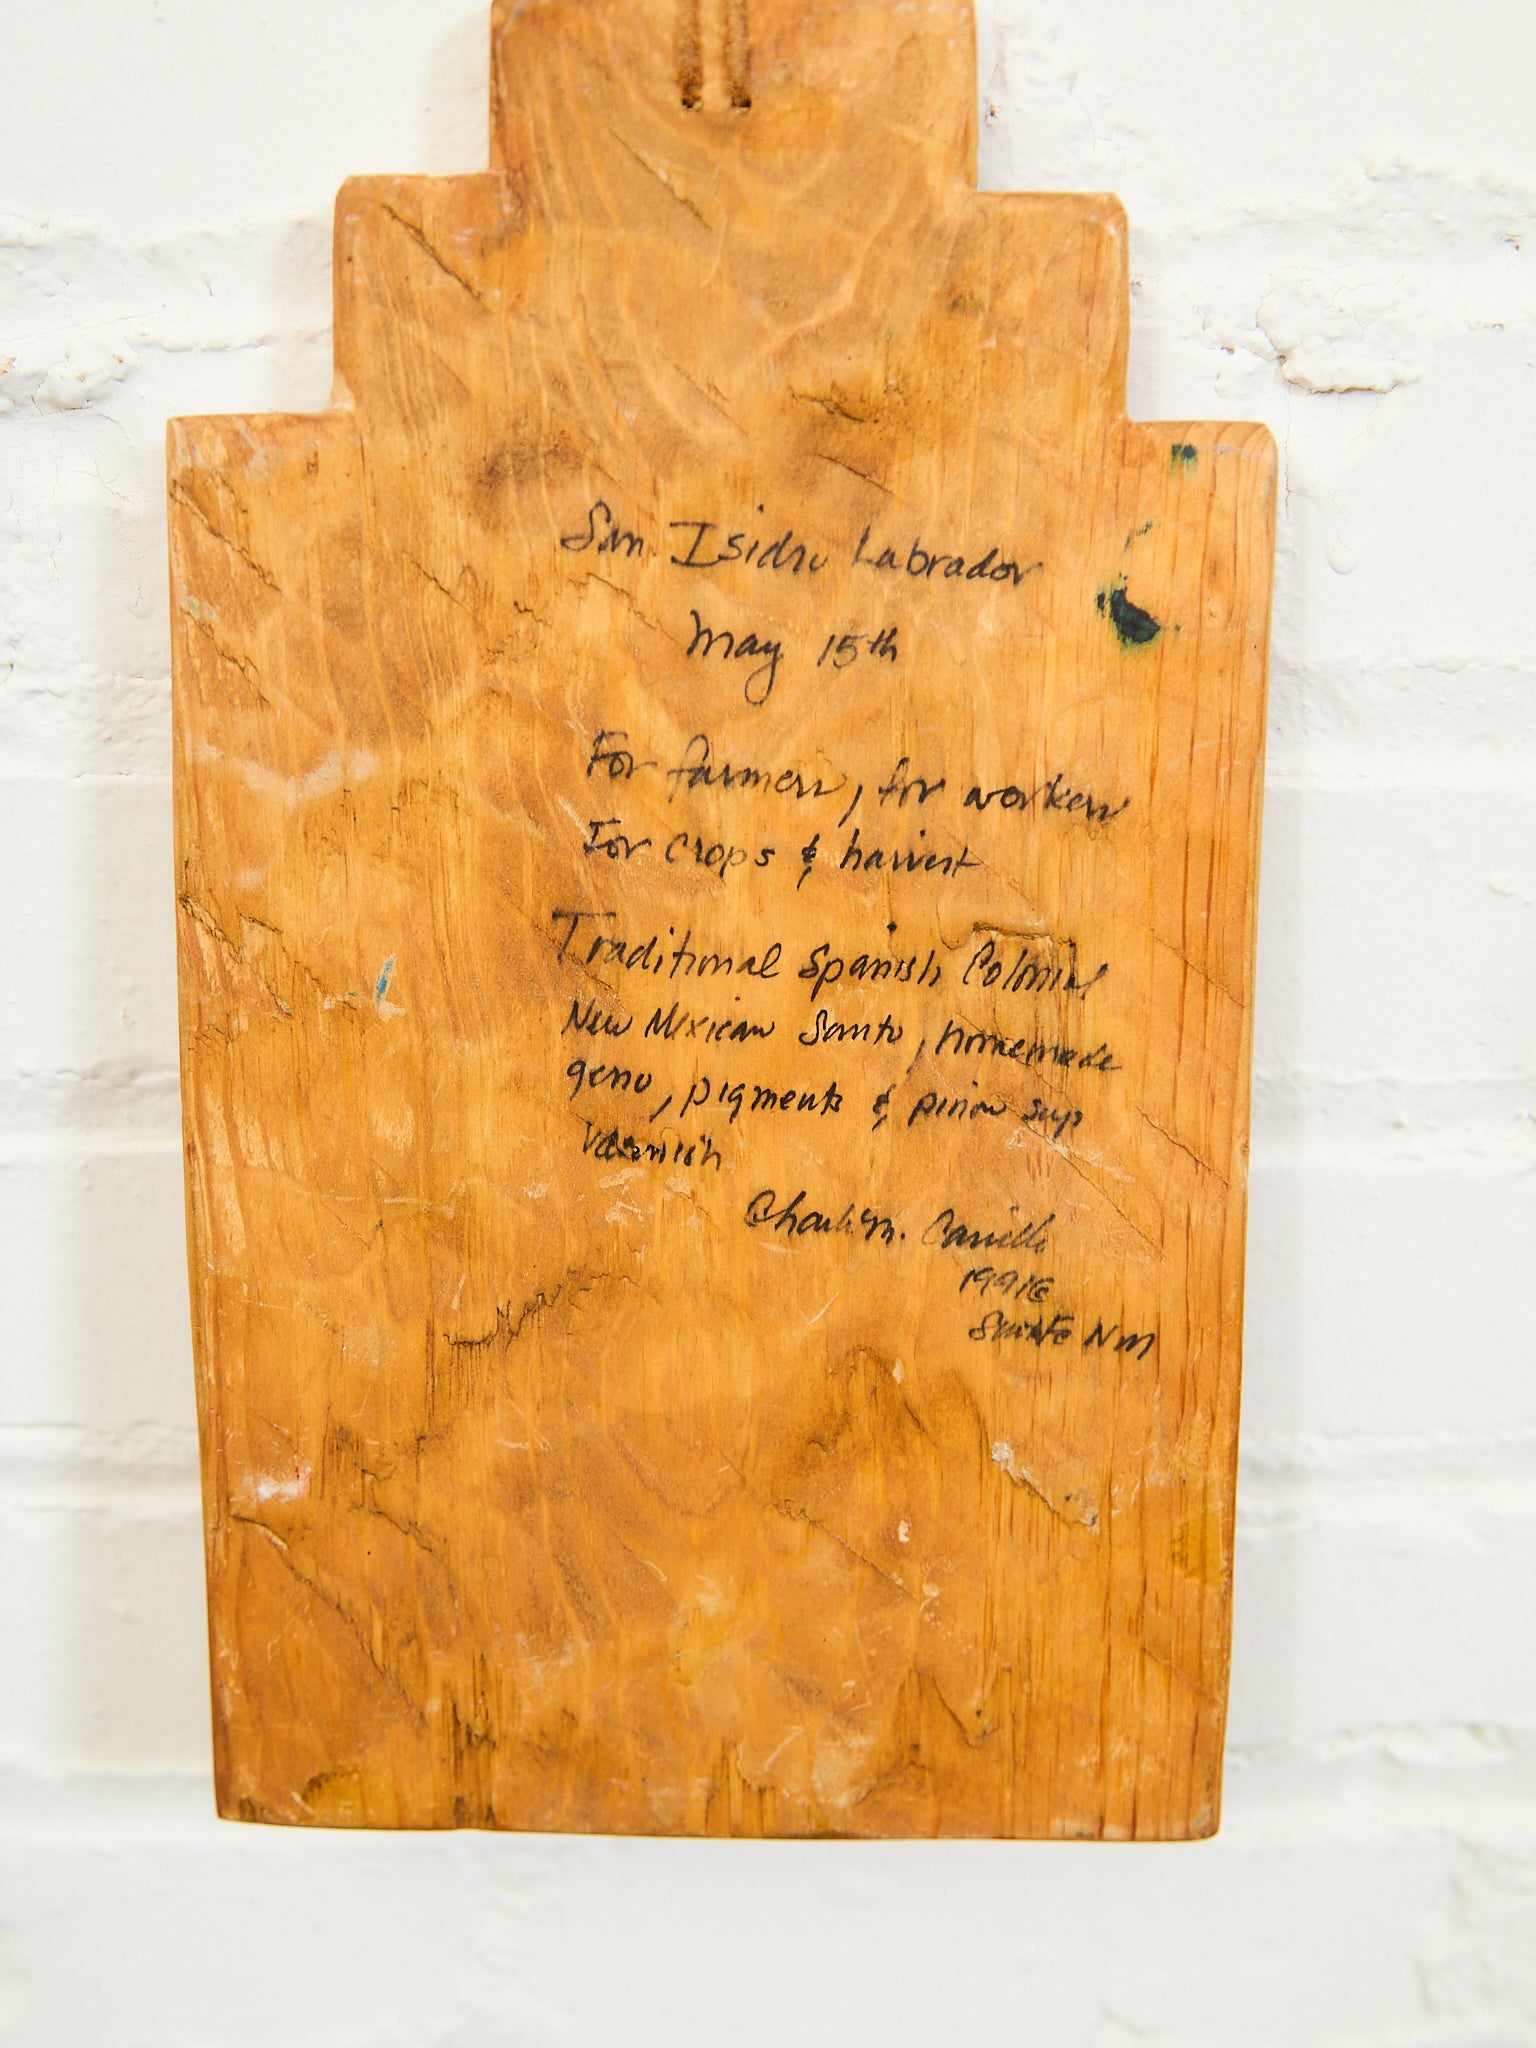 San Isidro Labrador
May 15th
For farmers, for workers
For crops & harvest
Traditional Spanish Colonial
New Mexican Santo, homemade
gesso, pigments & pinon sap
Varnish
Charlie M. Carrillo
SantaFe NM